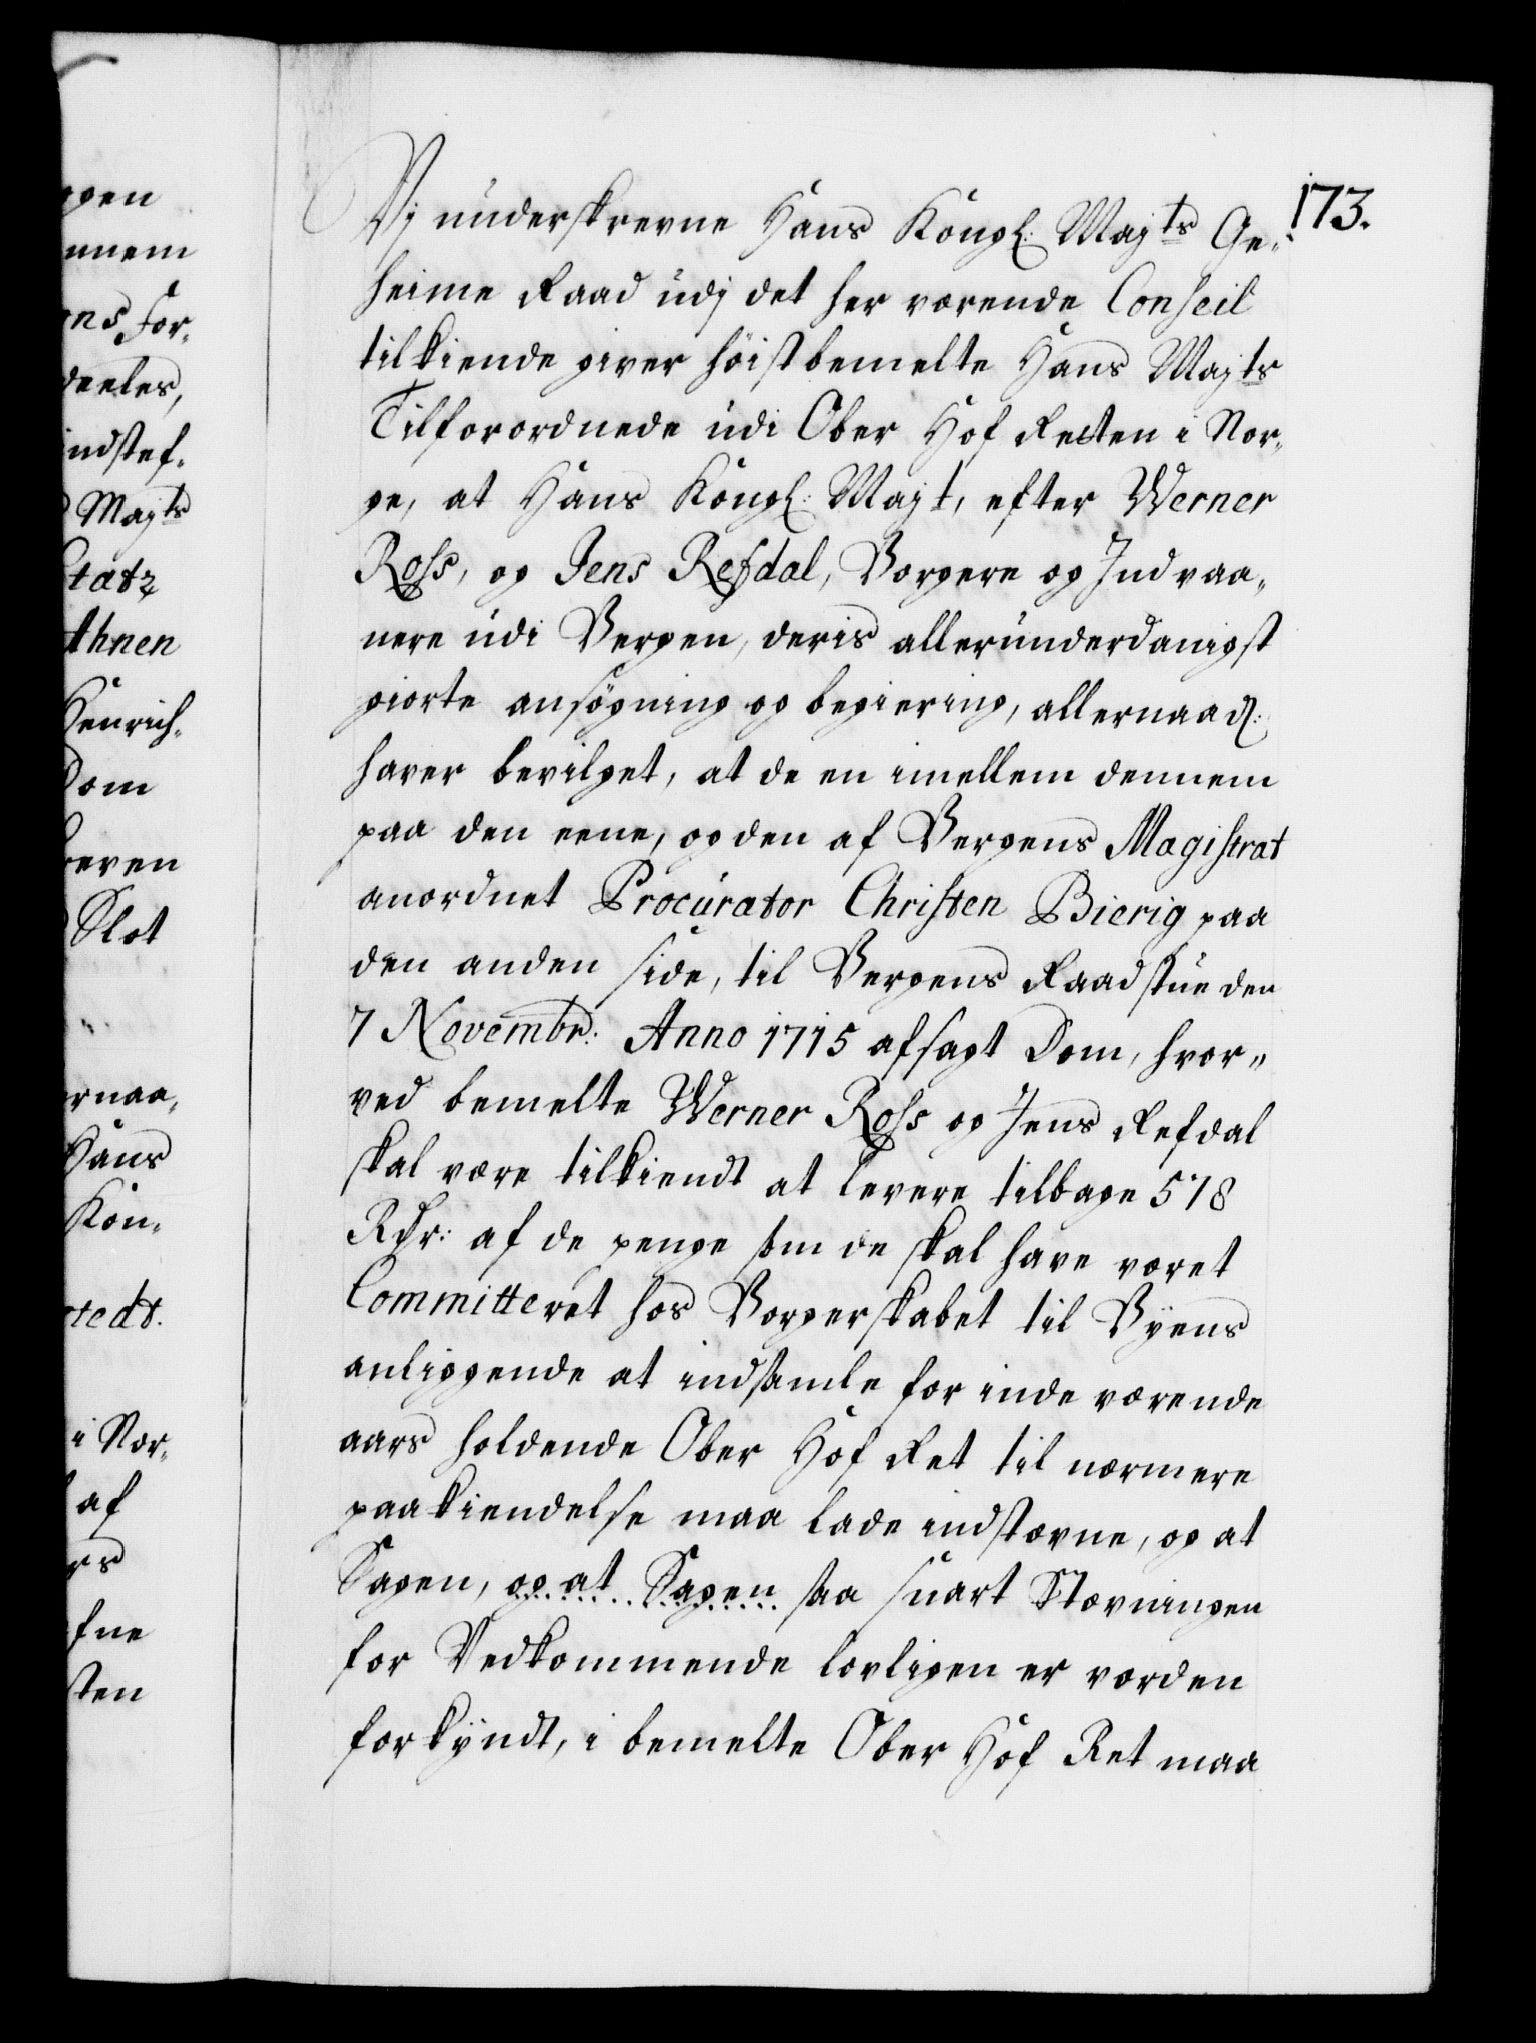 173.
Vj underskrevne Hans Kongl: Majts Ge-
heime Raad udj det her værende Conseil
tilkiende giver höistbemelte Hans Majts
Tilforordnede udi Ober Hof Retten i Nor-
ge, at Hans Kongl: Majt, efter Werner
Ross, og Jens Refdal, Borgere og Indvaa-
nere udi Bergen, deris allerunderdanigst
giorte ansögning og begiering, allernaad:
haver bevilget, at de en imellem dennem
paa den eene, og den af Bergens Magistrat
anordnet Procurator Christen Bierig paa
den anden side, til Bergens Raadstue den
7 Novembr: Anno 1715 afsagt Dom, hvor-
ved bemelte Werner Ross og Jens Refdal
skal være tilkiendt at levere tilbage 578
Rdr: af de penge som de skal have været
Committeret hos Borgerskabet til Byens
anliggende at indsamle for inde værende
aars holdende Ober Hof Ret til nærmere
paakiendelse maa lade indstævne, og at
Sagen, og at Sagen saa snart Stævningen
for Vedkommende lovligen er vorden
forkyndt, i bemelte Ober Hof Ret maa
gen
nnem
ns For-
deeles,
indstef-
Majts
tatz
Ahnen
Henrich-
Dom
even
Slot
rnaa-
Hans
Kon-
tedt.
i Nor-
af
rs
fne
sten